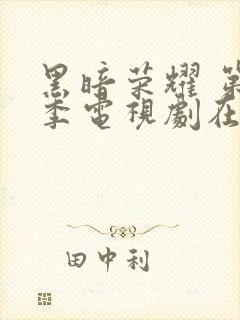 黑暗荣耀 第
季電視劇在
田中利